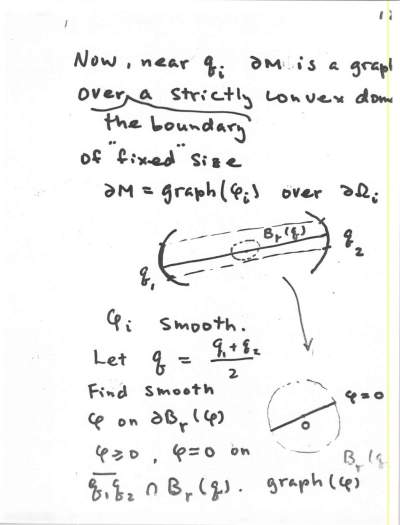 Now, near q_i ∂M is a graph
over a strictly convex dom
the boundary
of "fixed" size
∂M = graph(φ_i) over ∂Ω_i
B_r(q)
q_1
q_2
φ_i smooth.
Let q = (q_1 + q_2)/2
Find smooth
φ on ∂B_r(φ)
φ ≥ 0, φ = 0 on
q_1q_2 ∩ B_r(q).
φ = 0
0
B_r(q
graph(φ)